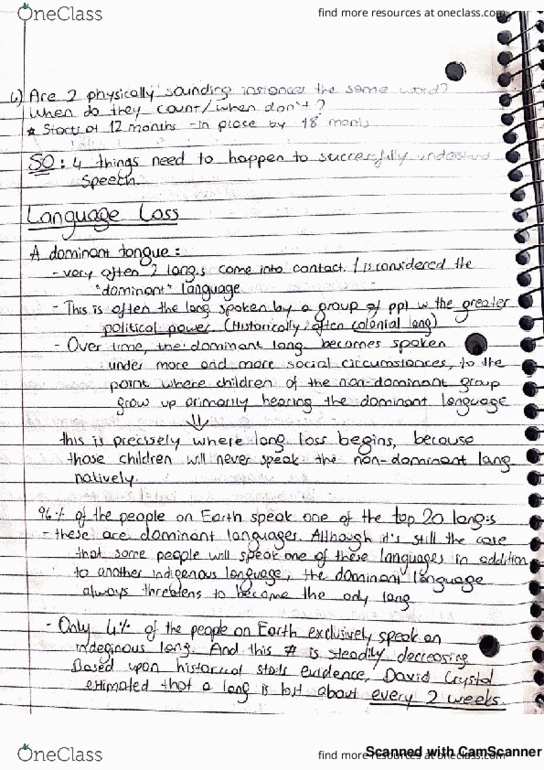 OneClass
find more resources at oneclass.com
6) Are 2 physically sounding instances the same word?
When do they count/when don't?
* Starts at 12 months - in place by 18 months
SO: 4 things need to happen to successfully understand
Speech.
Language Loss
A dominant tongue:
- very often 2 lang.s come into contact. 1 is considered the
"dominant" language
- This is often the lang spoken by a group of ppl w the greater
political power. (Historically, often colonial lang)
- Over time, the dominant lang. becomes spoken
under more and more social circumstances, to the
point where children of the non-dominant group
grow up primarily hearing the dominant language
↓
this is precisely where lang loss begins, because
those children will never speak the non-dominant lang
natively.
96% of the people on Earth speak one of the top 20 lang.s
- these are dominant languages. Although it's still the case
that some people will speak one of these languages in addition
to another indigenous language, the dominant language
always threatens to become the only lang
- Only 4% of the people on Earth exclusively speak an
indeginous lang. And this # is steadily decreasing
Based upon historical stats evidence, David Crystal
estimated that a lang is lost about every 2 weeks.
OneClass
find more resources at oneclass.com
Scanned with CamScanner